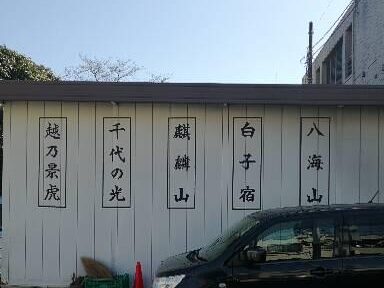 八海山
白子宿
麒麟山
千代の光
越乃景虎